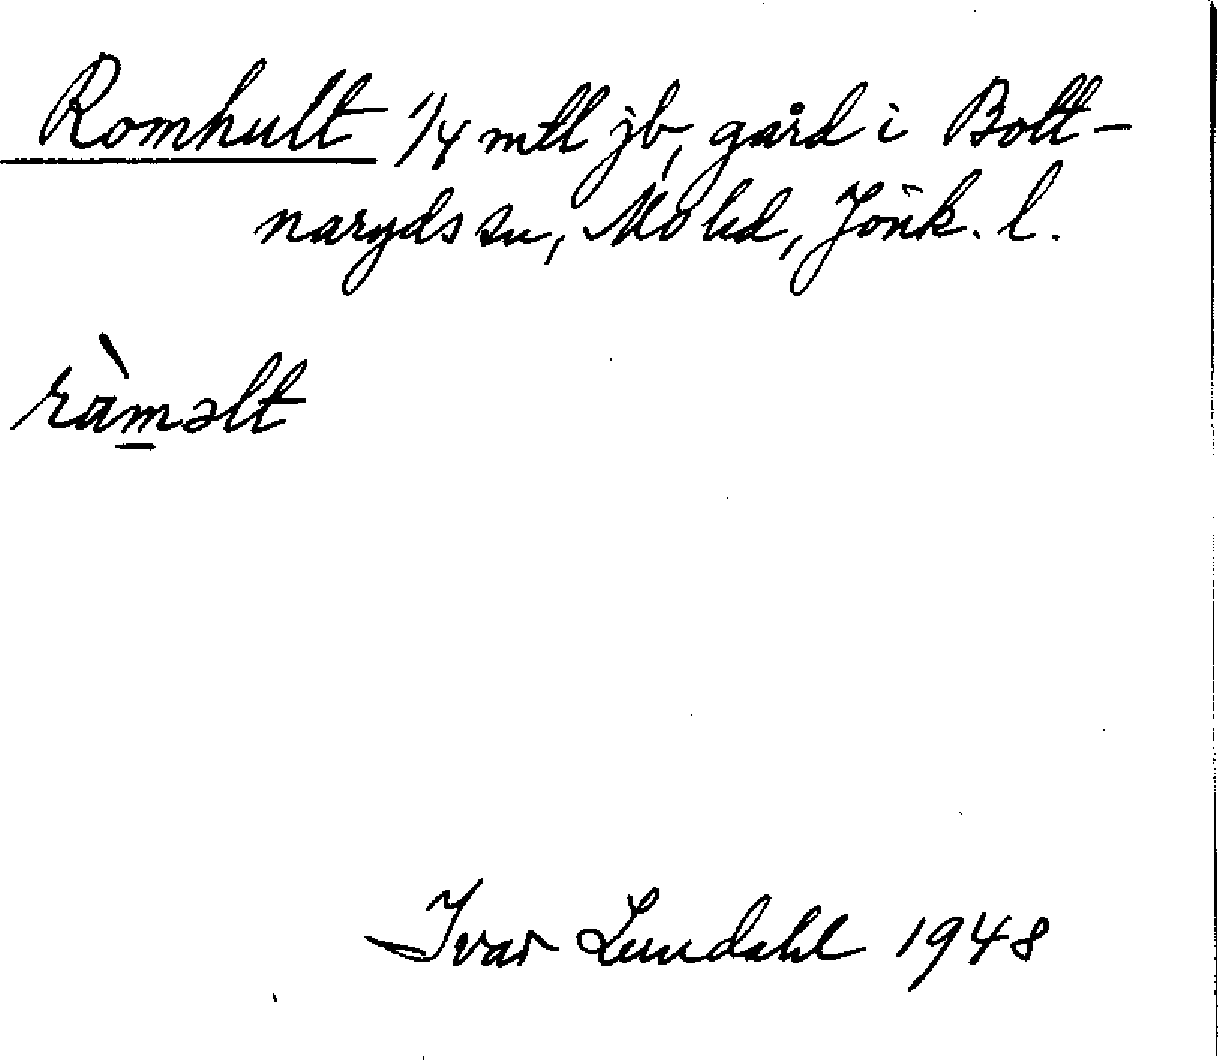 Romhult 1/4 mtl jb, gård i Bott-
naryds sn, Mo hd, Jönk. l.
ràm̲əlt
Ivar Lundahl 1948